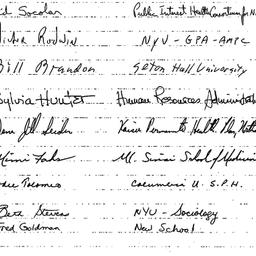 Socolar Public Interest Health Consortium for N
Victor Rodwin NYU - GPA - AMPC
Bill Brandon Seton Hall University
Sylvia Hunter Human Resources Administrat
Kaiser Permanente Health Plan,
Mimi Fahs Mt. Sinai School of Medicine
Columbia U. S.P.H.
Steven NYU - Sociology
Fred Goldman New School